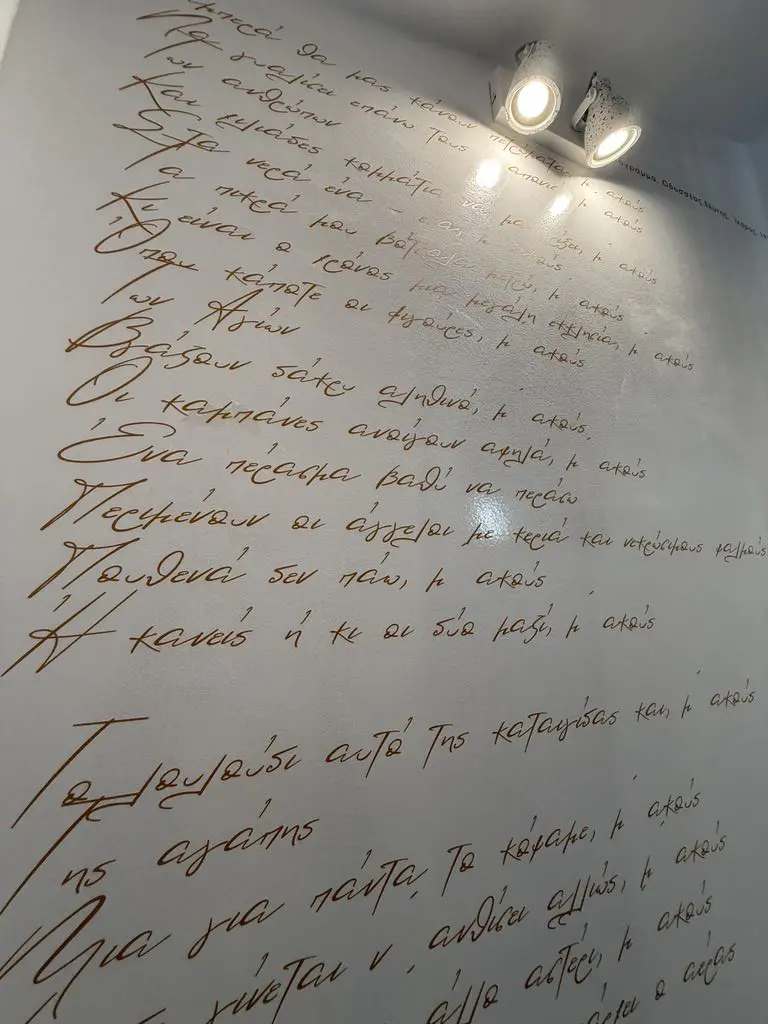 μπερά θα μας κάνουν πετρώματα, μ' ακούς
Να γυαλίσει επάνω τους η απονιά, μ' ακούς
Των ανθρώπων
Και χιλιάδες κομμάτια να μας ρίξει, μ' ακούς
Στα νερά ένα - ένα, μ' ακούς
Τα πικρά μου βότσαλα μετρώ, μ' ακούς
Κι είναι ο χρόνος μια μεγάλη εκκλησία, μ' ακούς
Όπου κάποτε οι φιγούρες, μ' ακούς
Των Αγίων
Βγάζουν δάκρυ αληθινό, μ' ακούς,
Οι καμπάνες ανοίγουν αψηλά, μ' ακούς
Ένα πέρασμα βαθύ να περάσω
Περιμένουν οι άγγελοι με κεριά και νεκρώσιμους ψαλμούς
Πουθενά δεν πάω, μ' ακούς
Ή κανείς ή κι οι δύο μαζί, μ' ακούς
Το λουλούδι αυτό της καταιγίδας και, μ' ακούς
Της αγάπης
Μια για πάντα το κόψαμε, μ' ακούς
γίνεται ν' ανθίσει αλλιώς, μ' ακούς
άλλο αστέρι, μ' ακούς
ο αέρας